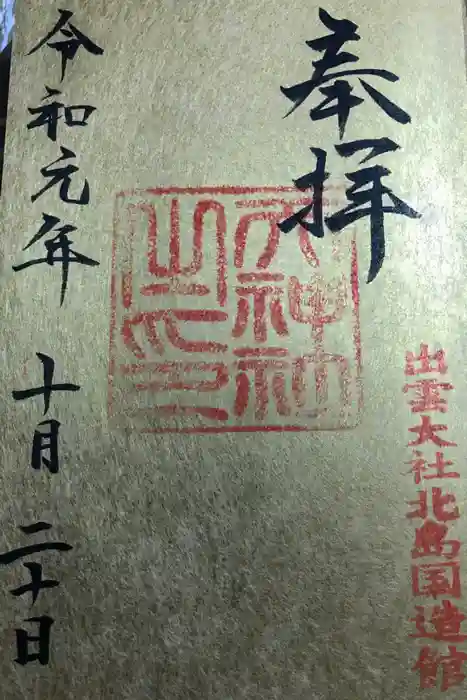 奉拝
出雲大社北島国造館
令和元年十月二十日